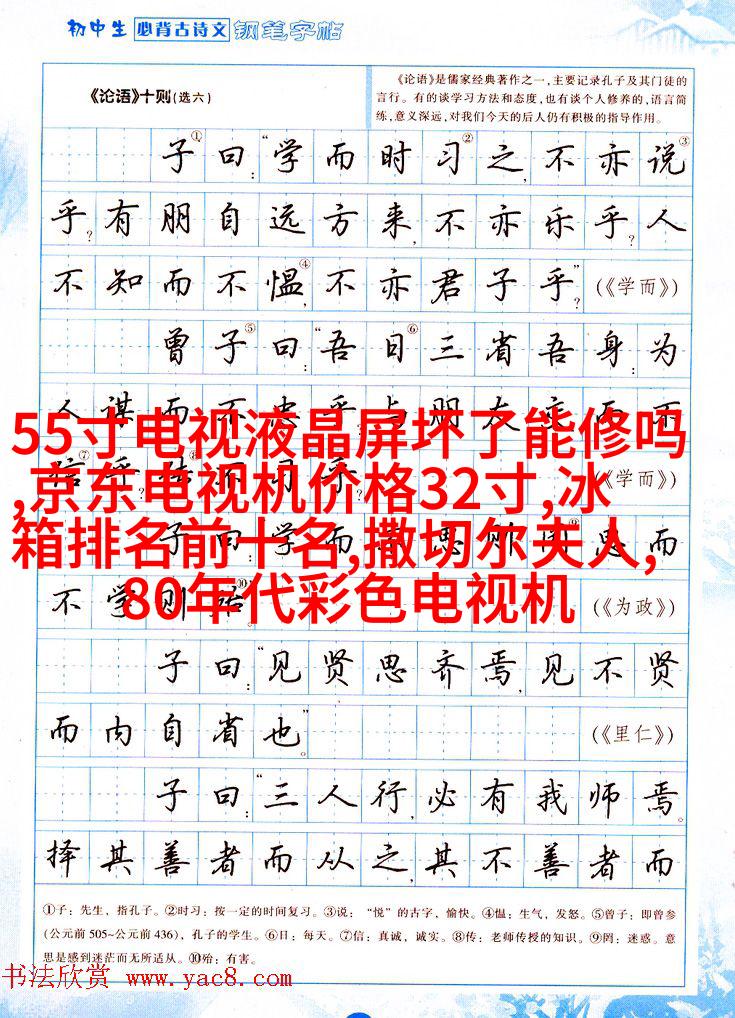 初中生 必背古诗文 钢笔字帖
《论语》十则(选六)
《论语》是儒家经典著作之一,主要记录孔子及其门徒的
言行。有的谈学习方法和态度,也有谈个人修养的,语言简
练,意义深远,对我们今天的后人仍有积极的指导作用。
子①曰:“学而时习②之,不亦说③
乎?有朋自远方来,不亦乐乎?人
不知而不愠④,不亦君子乎?”(《学而》)
曾子⑤曰:“吾日⑥三省吾身:为
人谋而不忠乎?与朋友交而不
信⑦乎?传⑧不习乎?(《学而》)
55寸电视液晶屏坏了能修吗
,京东电视机价格32寸,冰
箱排名前十名,撒切尔夫人,
80年代彩色电视机
子曰:“学而不思则罔,思而
不学则殆⑩(《为政》)
子曰:“见贤思齐焉,见不贤
而内自省也。”(《里仁》)
子曰:“三人行,必有我师焉。
择其善者而从之,其不善者而
①子:先生,指孔子。②时习:按一定的时间复习。③说:“悦”的古字,愉快。④愠:生气,发怒。⑤曾子:即曾参
(公元前505~公元前436),孔子的学生。⑥日:每天。⑦信:真诚,诚实。⑧传:老师传授的知识。⑨罔:迷惑。意
思是感到迷茫而无所适从。⑩殆:有害。
书法欣赏 www.yac8.com